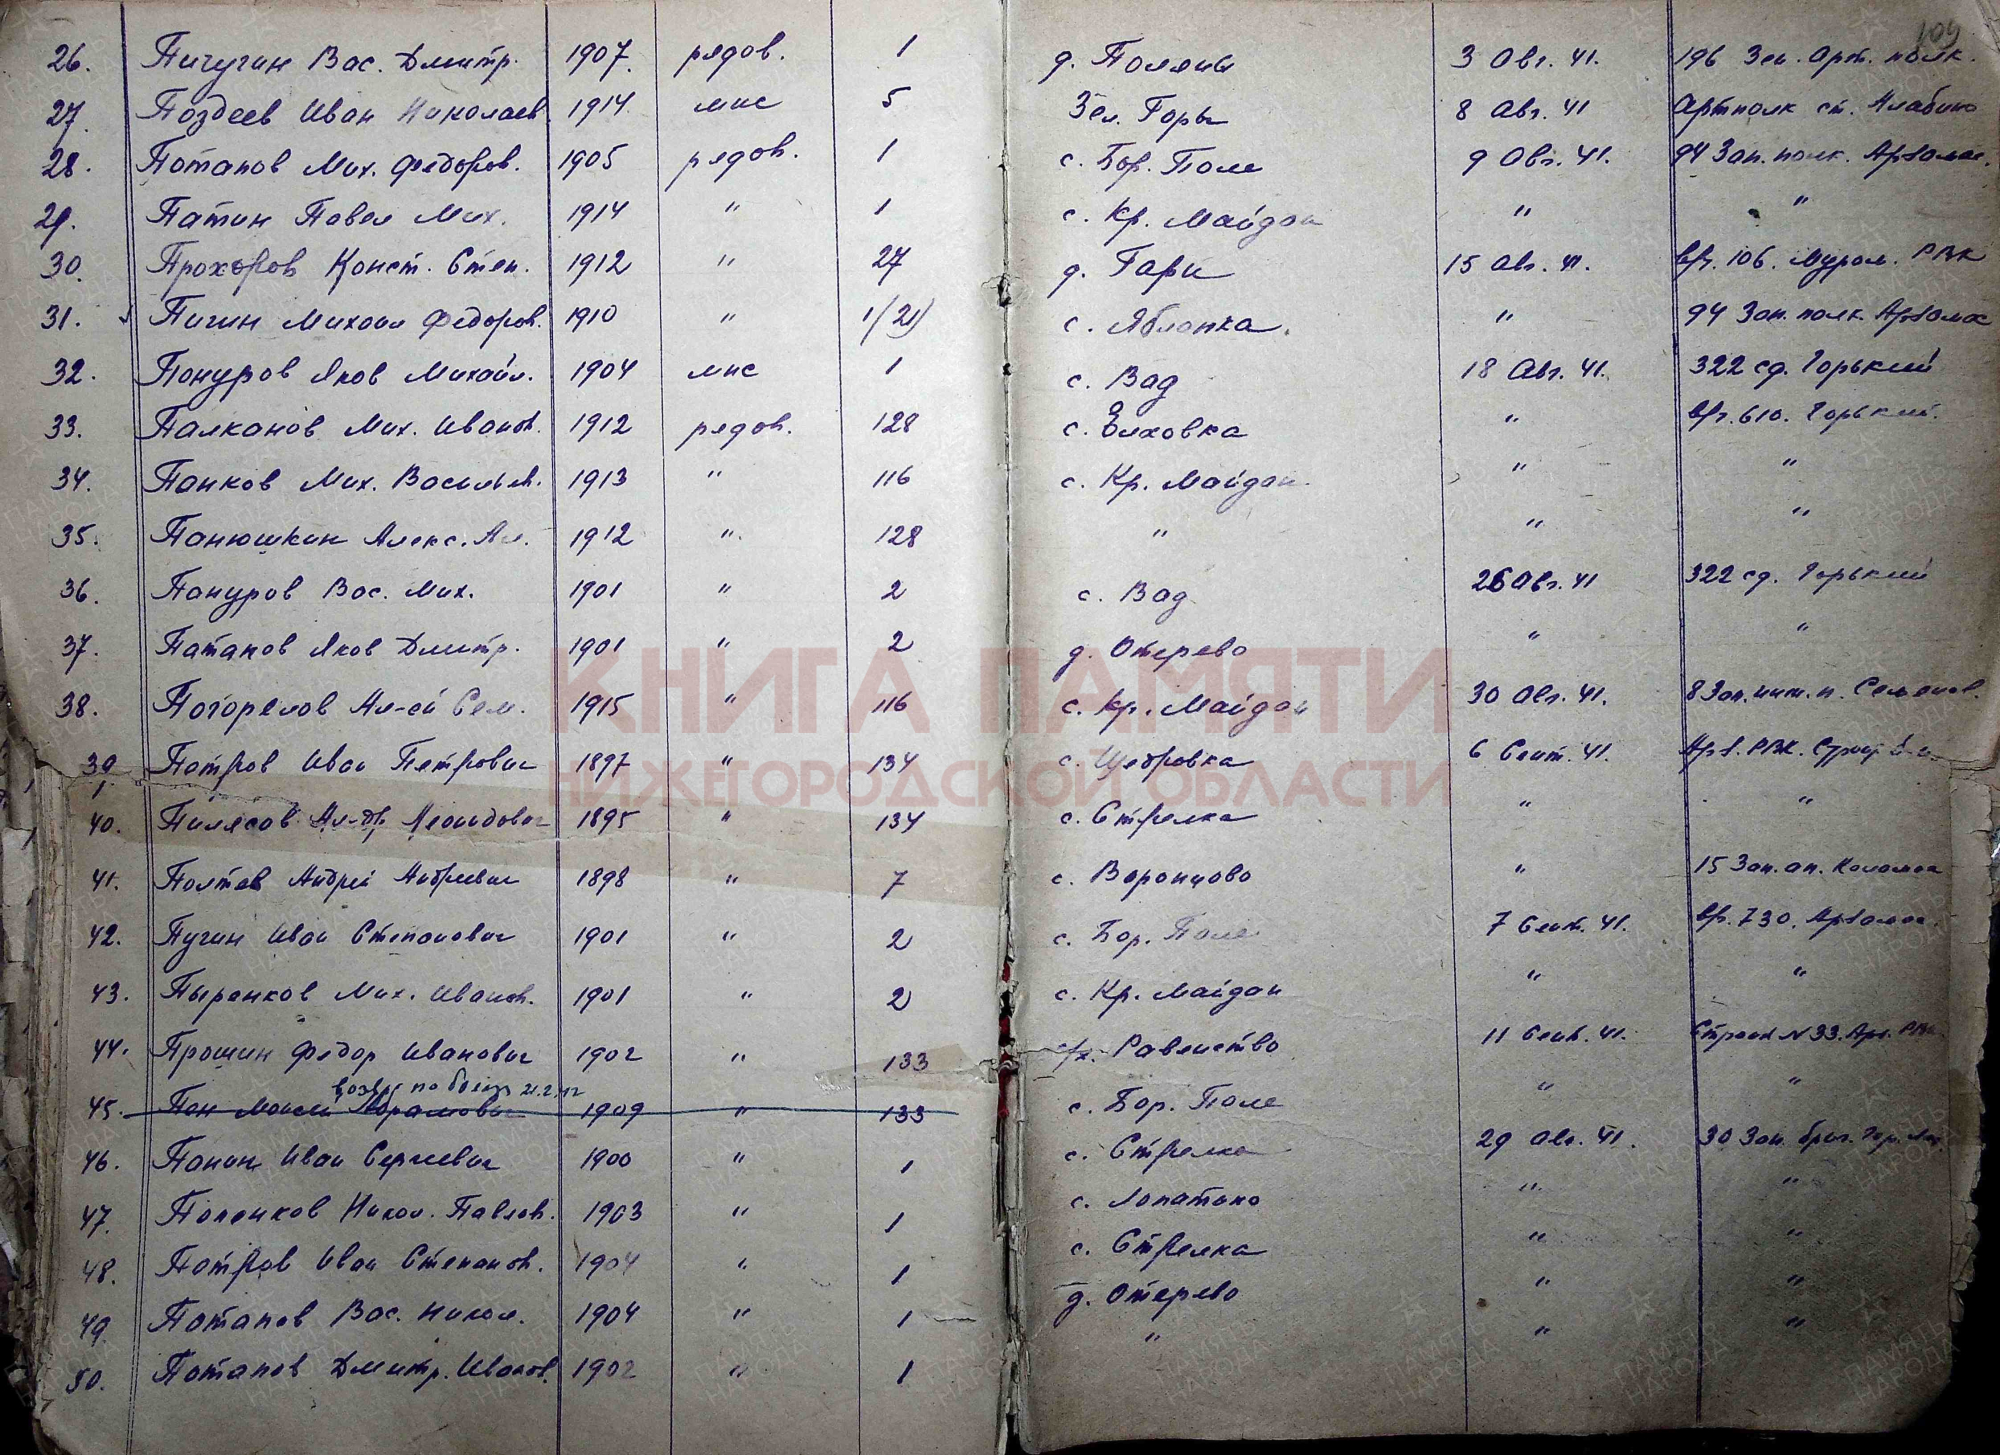 109
26. Пичугин Вас. Дмитр. 1907. рядов. 1 д. Поляны 3 Авг. 41. 196 Зен. Арт. полк.
27. Поздеев Иван Николаев. 1914 мнс 5 Зел. Горы 8 Авг. 41 Артполк ст. Алабино
28. Потапов Мих. Федоров. 1905 рядов. 1 с. Бор. Поле 9 Авг. 41. 94 Зап. полк. Арзамас.
29. Патин Павел Мих. 1914 " 1 с. Кр. Майдан " "
30. Прохоров Конст. Степ. 1912 " 27 д. Гари 15 Авг. 41. вч. 106. Муром. РВК
31. Пигин Михаил Федоров. 1910 " 1/21) с. Яблонка. " 94 Зап. полк. Арзамас
32. Понуров Яков Михайл. 1904 мнс 1 с. Вад 18 Авг. 41. 322 сд. Горький
33. Палканов Мих. Иванов. 1912 рядов. 128 с. Елховка " вч. 610. Горький.
34. Панков Мих. Васильев. 1913 " 116 с. Кр. Майдан. " "
35. Панюшкин Алекс. Ал. 1912 " 128 " " "
36. Понуров Вас. Мих. 1901 " 2 с. Вад 26 Авг. 41 322 сд. Горький
37. Патапов Яков Дмитр. 1901 " 2 д. Отерево " "
38. Погорелов Ал-ей Сем. 1915 " 116 с. Кр. Майдан 30 Авг. 41. 8 Зап. инж. п. Семенов.
39. Петров Иван Петрович 1897 " 134 с. Щедровка 6 Сент. 41. Арз. РВК.
40. Пилясов Ал-др Леонидович 1895 " 134 с. Стрелка " "
41. Полтев Андрей Андреевич 1898 " 7 с. Воронцово " 15 Зап. ап. Коломна
42. Пугин Иван Степанович 1901 " 2 с. Бор. Поле 7 Сент. 41. вч. 730. Арзамас.
43. Пыренков Мих. Иванов. 1901 " 2 с. Кр. Майдан " "
44. Прошин Федор Иванович 1902 " 133 с/х. Равенство 11 Сент. 41. N 33. Арз. РВК
возвр. по болезн 21.2.42
45. Пан Моисей Абрамович 1909 " 133 с. Бор. Поле " "
46. Панин Иван Сергеевич 1900 " 1 с. Стрелка 29 Авг. 41. 30 Зап. бриг.
47. Поленков Никол. Павлов. 1903 " 1 с. Лопатино " "
48. Петров Иван Степанов. 1904 " 1 с. Стрелка " "
49. Потапов Вас. Никол. 1904 " 1 д. Отерево " "
50. Потапов Дмитр. Иванов. 1902 " 1 " " "
КНИГА ПАМЯТИ
НИЖЕГОРОДСКОЙ ОБЛАСТИ